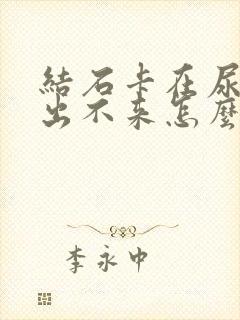 結石卡在尿
出不来怎麼
李永中